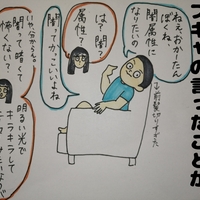 たことが
ねぇ、おかーたん
ぼくね、
闇属性に
なりたいの
前髪切りすぎた
は?闇?
属性?
闇ってかっこいいよね
いや、分からん。
闇って暗くて
怖くない?
明るい光で
キラキラして